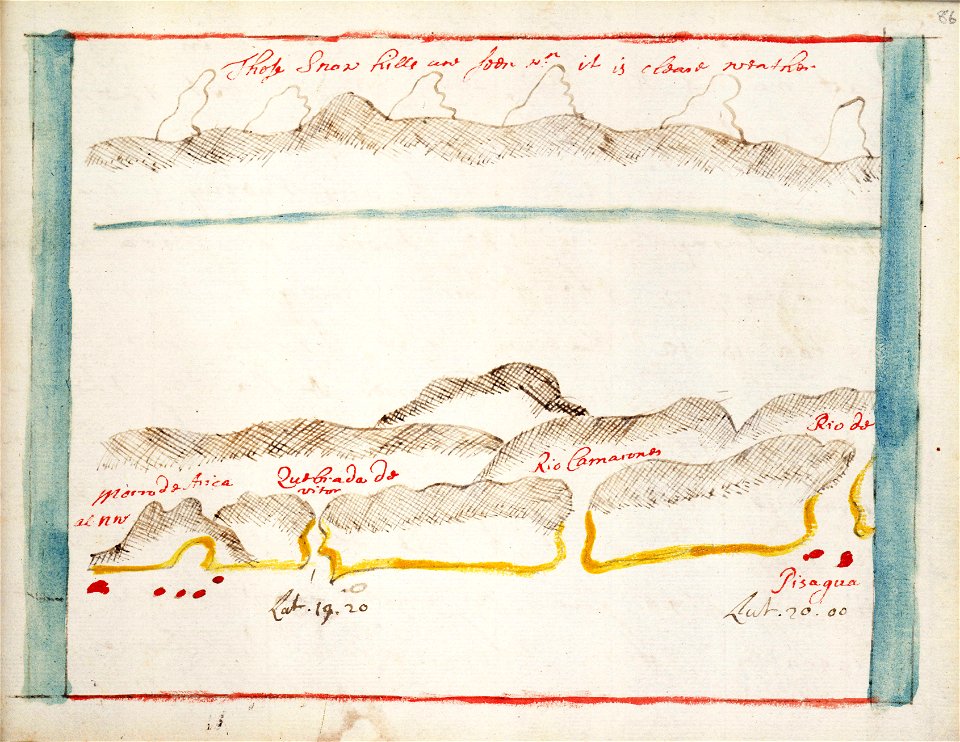 86
Those Snow hills are seen wn it is cleare weather
Rio de
Rio Camarones
Quebrada de
vitor
Morro de Arica
al nw
Pisagua
Lat. 19.20
Lat. 20.00